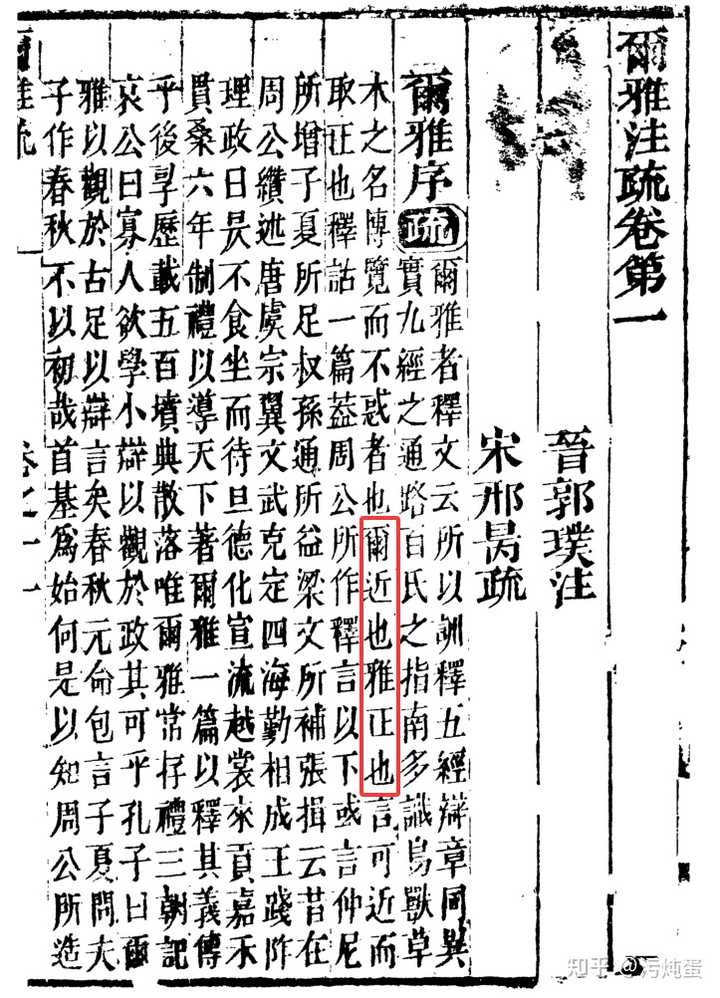 爾雅注疏卷第一
晉郭璞注
宋邢昺疏
爾雅序 疏 爾雅者釋文云所以訓釋五經辯章同異
實九經之通路百氏之指南多識鳥獸草
木之名博覽而不惑者也爾近也雅正也言可近而
取正也釋詁一篇葢周公所作釋言以下或言仲尼
所增子夏所足叔孫通所益梁文所補張揖云昔在
周公纘述唐虞宗翼文武克定四海勤相成王踐阼
理政日昃不食坐而待旦德化宣流越裳來貢嘉禾
貫桑六年制禮以導天下著爾雅一篇以釋其義傳
乎後孠歷載五百墳典散落唯爾雅常存禮三朝記
哀公曰寡人欲學小辯以觀於政其可乎孔子曰爾
雅以觀於古足以辯言矣春秋元命包言子夏問夫
子作春秋不以初哉首基爲始何是以知周公所造
知乎 @污炖蛋